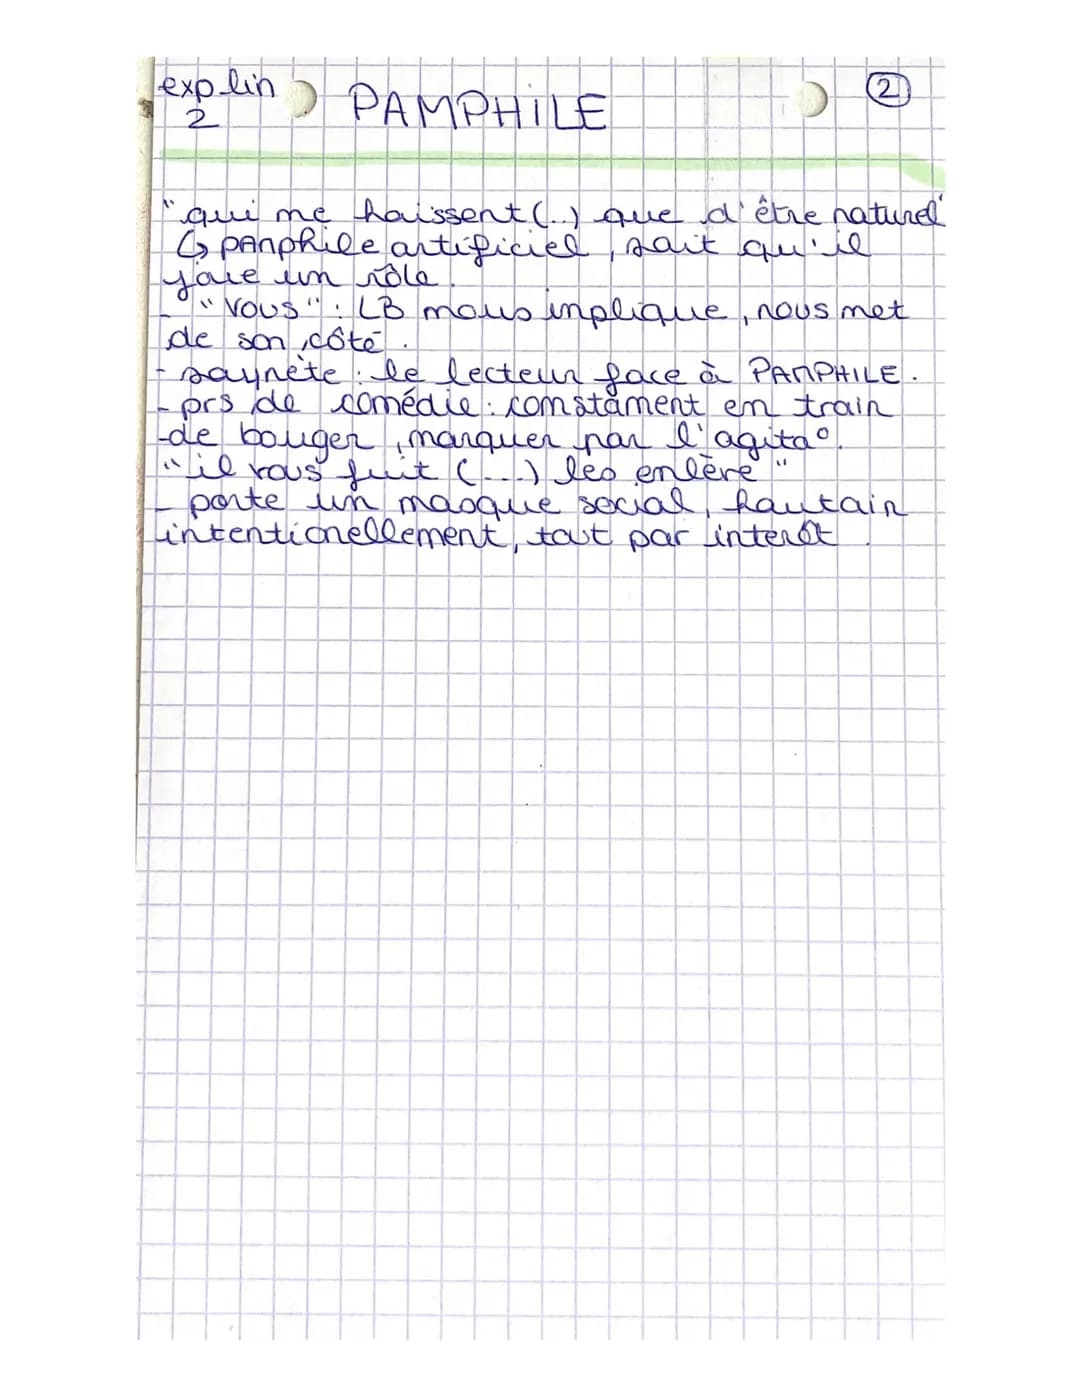 exp lin
2
PAMPHILE
2
"qui me haissent (..) que d'être naturel"
↳ pAnphile artificiel, sait qu'il
joue un rôle.
- "vous" : LB nous implique, nous met
de son côté.
- saynète : le lecteur face à PAMPHILE.
- prs de comédie : constament en train
-de bouger, marquer par l'agita°.
"il vous fuit (...) les enlève"
- porte un masque social, hautain
intentionellement, tout par interêt.